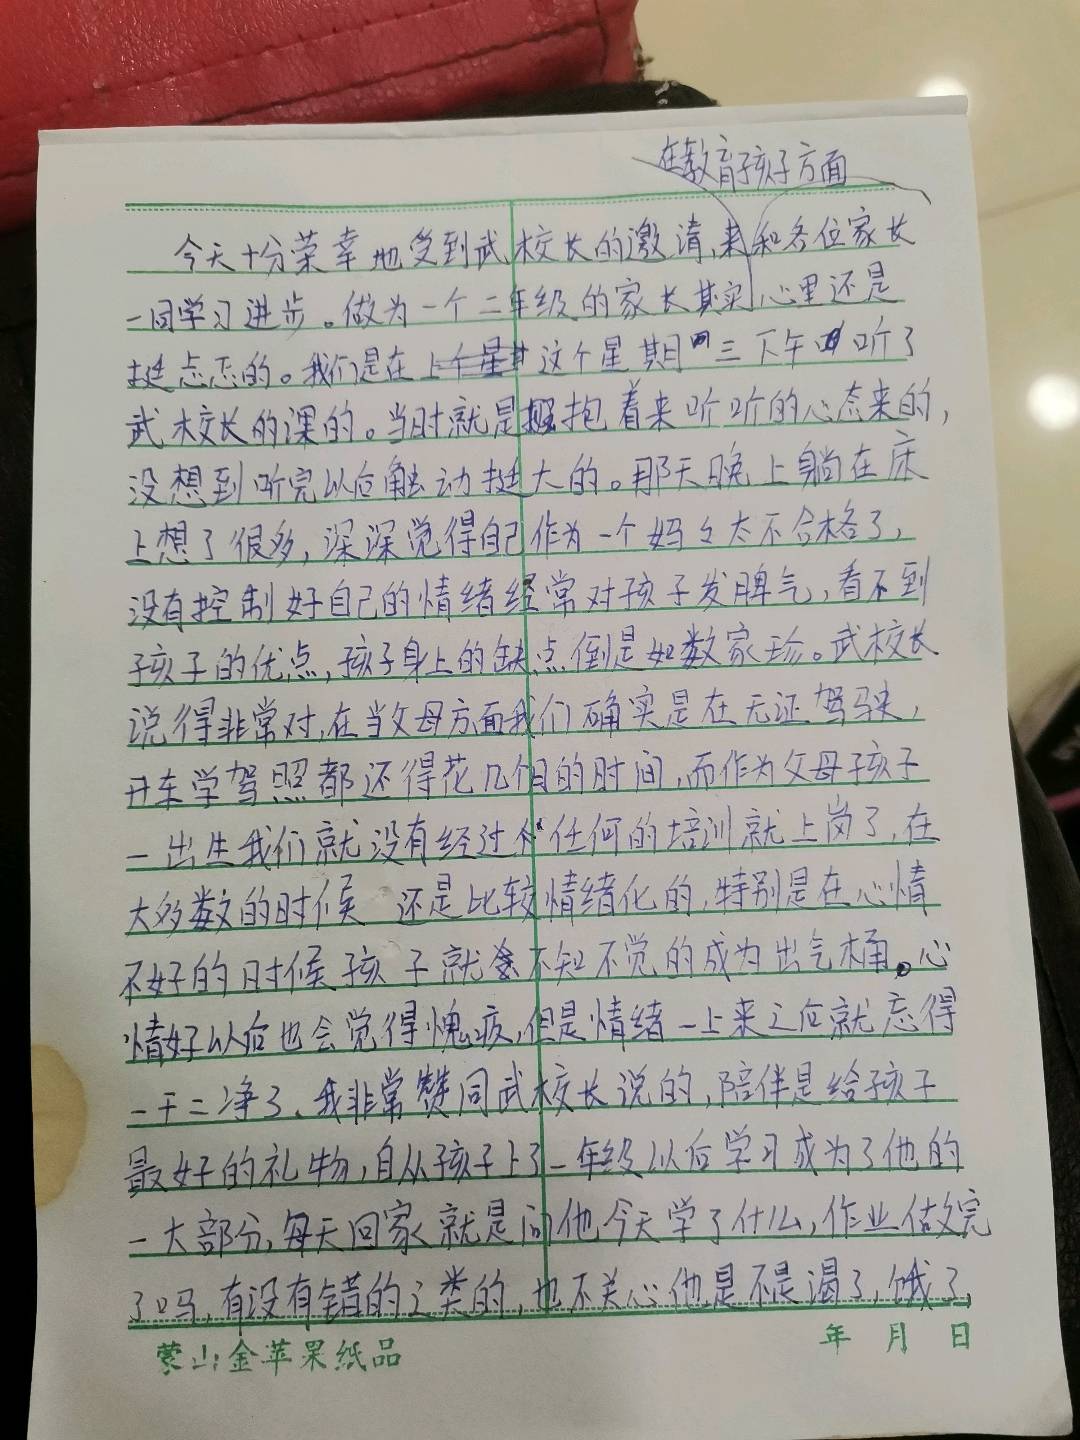 在教育孩子方面
今天十分荣幸地受到武校长的邀请,来和各位家长
一同学习进步。做为一个二年级的家长其实心里还是
挺忐忑的。我们是在这个星期三下午听了
武校长的课的。当时就是抱着来听听的心态来的,
没想到听完以后触动挺大的。那天晚上躺在床
上想了很多,深深觉得自己作为一个妈々太不合格了,
没有控制好自己的情绪经常对孩子发脾气,看不到
孩子的优点,孩子身上的缺点倒是如数家珍。武校长
说得非常对,在当父母方面我们确实是在无证驾驶,
开车学驾照都还得花几个月的时间,而作为父母孩子
一出生我们就没有经过任何的培训就上岗了,在
大多数的时候还是比较情绪化的,特别是在心情
不好的时候孩子就会不知不觉的成为出气桶。心
情好以后也会觉得愧疚,但是情绪一上来之后就忘得
一干二净了、我非常赞同武校长说的,陪伴是给孩子
最好的礼物,自从孩子上了一年级以后学习成为了他的
一大部分,每天回家就是问他今天学了什么,作业做完
了吗,有没有错的之类的,也不关心他是不是渴了,饿了,
蒙山金苹果纸品
年 月 日